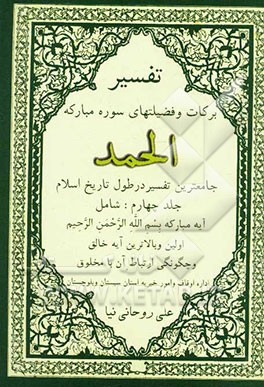 تفسیر
برکات وفضیلتهای سوره مبارکه
الحمد
جامعترین تفسیردرطول تاریخ اسلام
جلد چهارم : شامل
آیه مبارکه بِسْمِ اللَّهِ الرَّحْمَنِ الرَّحِیمِ
اولین وبالاترین آیه خالق
وچگونگی ارتباط آن با مخلوق
اداره اوقاف وامور خیریه استان سیستان وبلوچستان
علی روحانی نیا